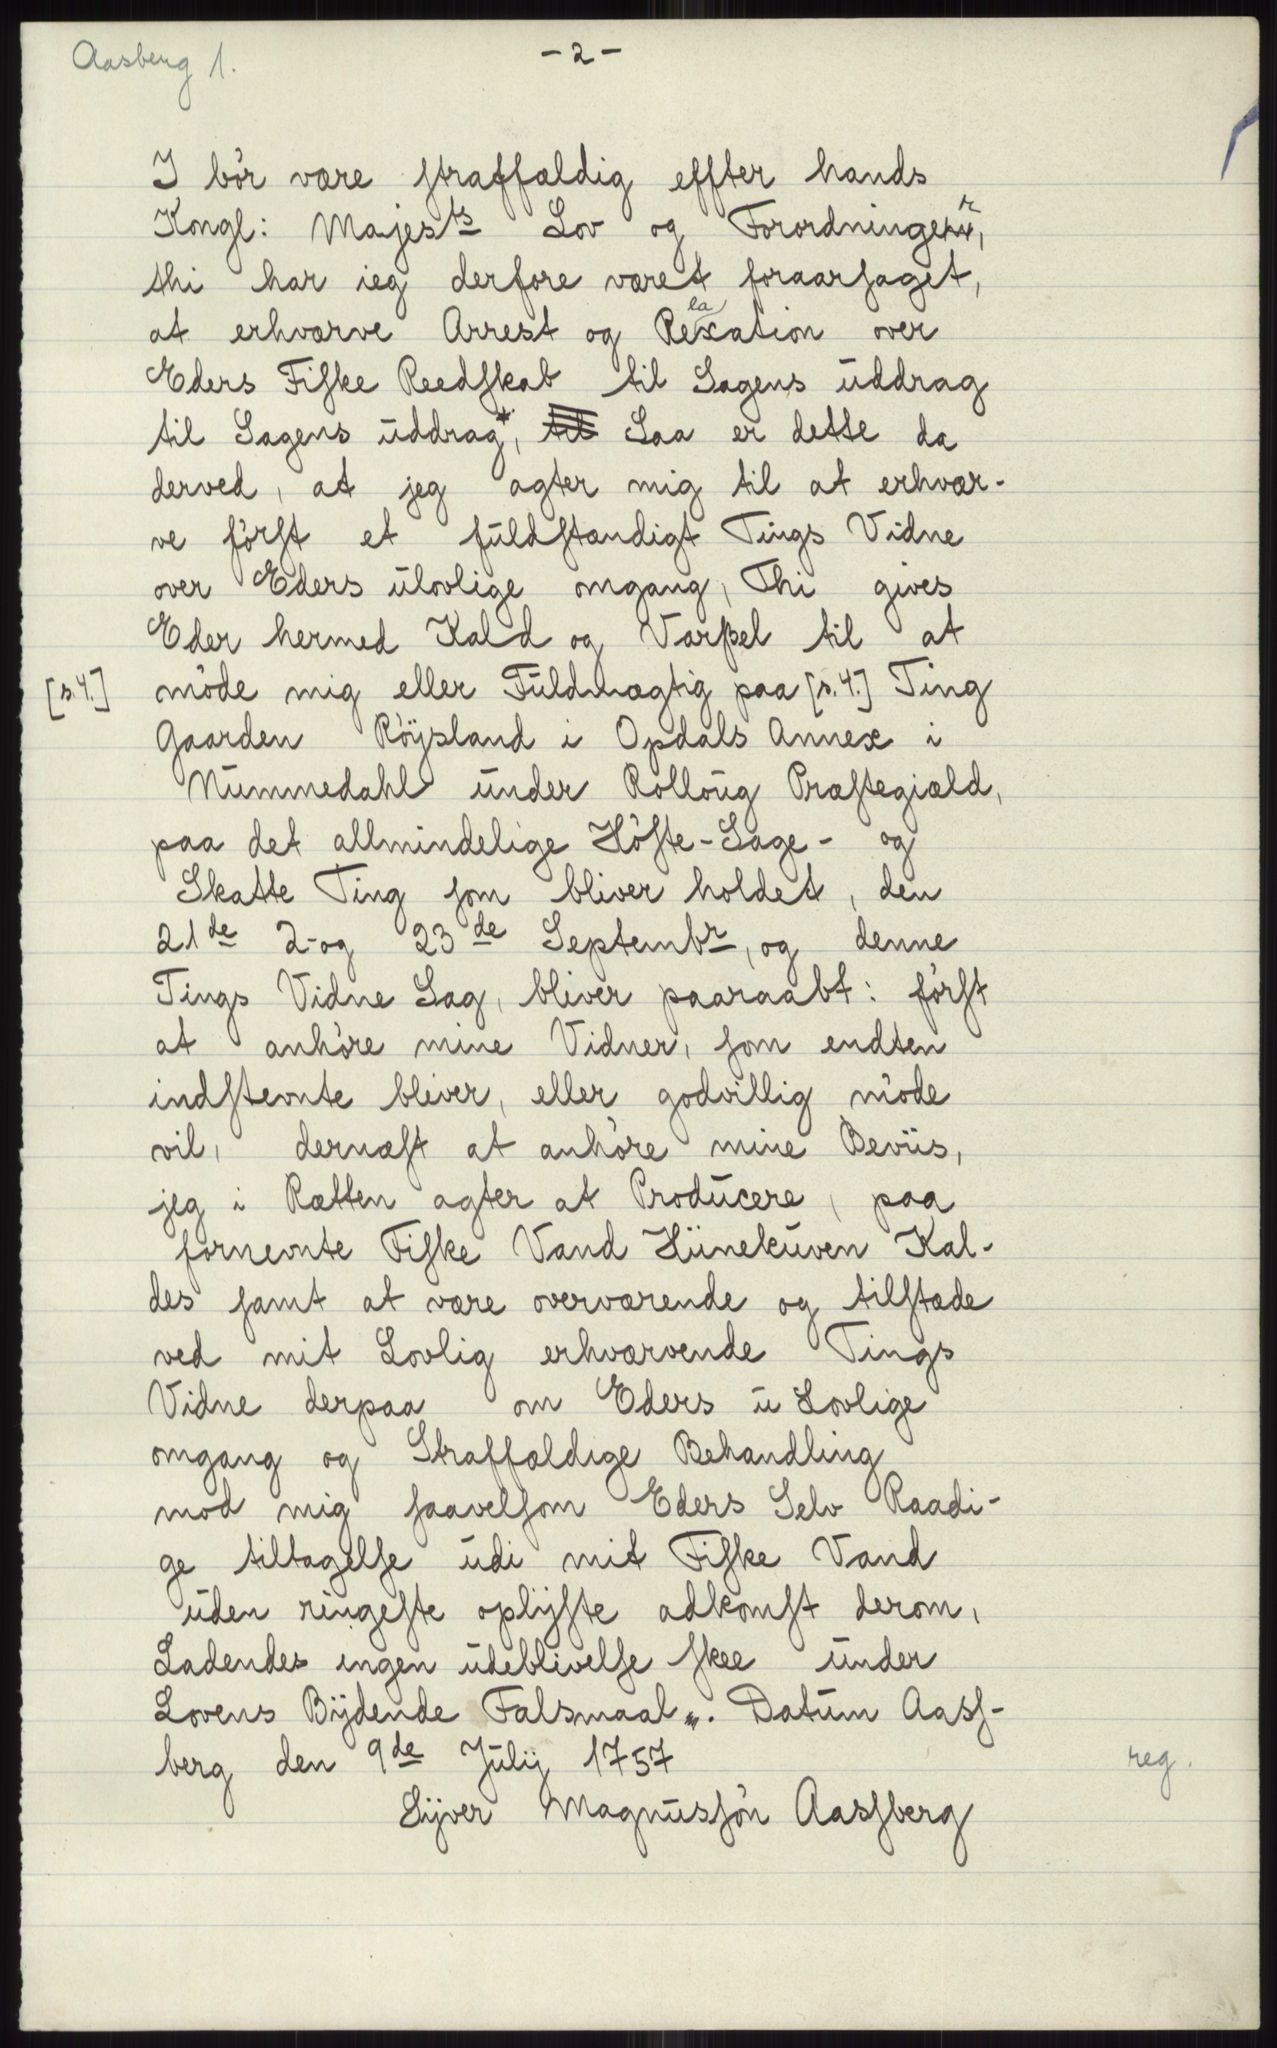 Aasberg 1.
- 2 -
I bör være straffældig effter hands
Kongl: Majests Lov og Forordninger,
thi har ieg derfore været foraarsaget,
at erhværve Arrest og Relaxation over
Eders Fiske Reedskab til Sagens uddrag
til Sagens uddrag*, til Saa er dette da
derved, at jeg agter mig til at erhvær-
ve först et fuldstændigt Tings Vidne
over Eders ulovlige omgang, Thi gives
Eder hermed Kald og Varßel til at
[s.4.] möde mig eller Fuldmægtig paa [s.4.] Ting
Gaarden Röysland i Opdals Annex i
Nummedahl under Rolloug Præstegiæld,
paa det allmindelige Höste-Sage- og
Skatte Ting som bliver holdet, den
21de 2-og 23de Septembr, og denne
Tings Vidne Sag, bliver paaraabt: först
at anhöre mine Vidner, som endten
indstevnte bliver, eller godvillig möde
vil, dernæst at anhöre mine Beviis,
jeg i Rætten agter at Producere, paa
fornevnte Fiske Vand Hiinekuven Kal-
des samt at være overværende og tilstæde
ved mit Lovlig erhværvende Tings
Vidne derpaa om Eders u Lovlige
omgang og Straffældige Behandling
mod mig saavelsom Eders Selv Raadi-
ge tiltagelse udi mit Fiske Vand
uden ringeste oplyste adkomst derom,
Ladendes ingen udeblivelse skee under
Lovens Bÿdende Falsmaal „. Datum Aass-
berg den 9de Julÿ 1757
reg.
Sÿver Magnussön Aassberg